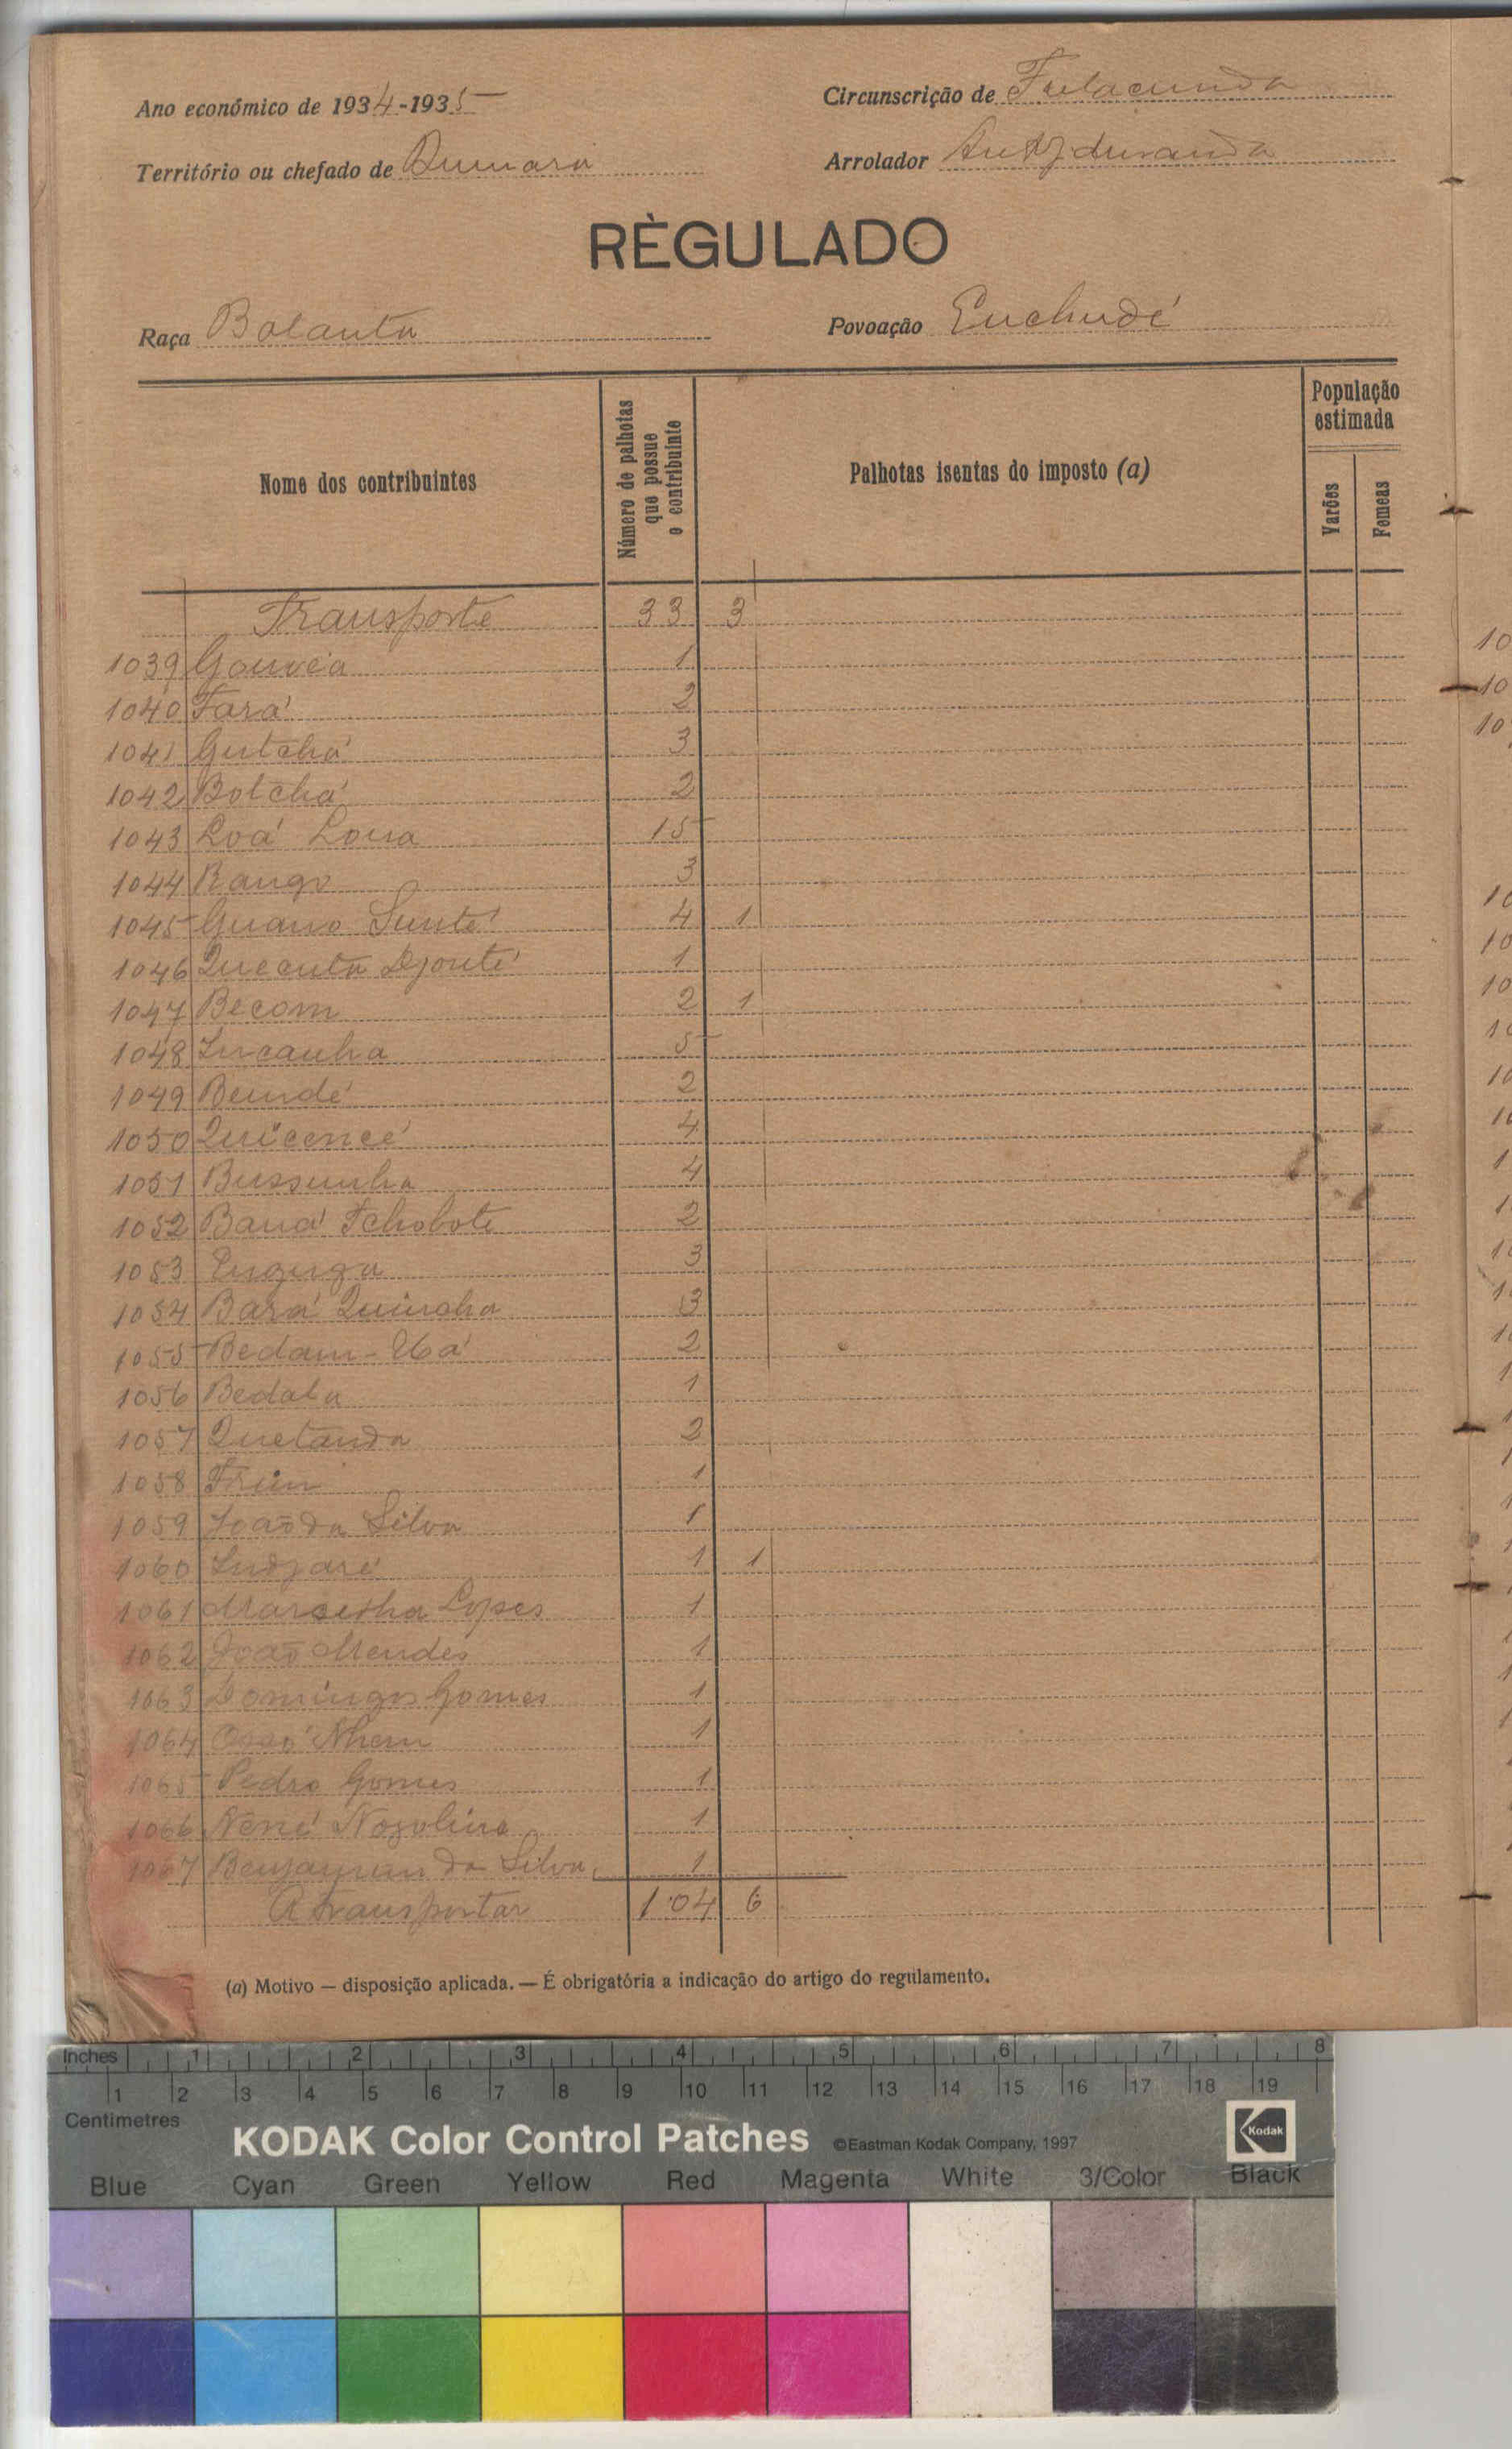 Ano económico de 1934-1935
Circunscrição de Fulacunda
Território ou chefado de Quinara
Arrolador
RÈGULADO
Raça Balanta
Povoação Enchudé
Nome dos contribuintes
Número de palhotas que possue o contribuinte
Palhotas isentas do imposto (a)
População estimada
Varões
Femeas
Transporte 33 3
1039 Gouveia 1
1040 Fará 2
1041 Gutchá 3
1042 Botchá 2
1043 Loá Lona 15
1044 Rango 3
1045 Guano Sunté 4 1
1046 Quecuta Djonté 1
1047 Becom 2 1
1048 Incanha 5
1049 Beundé 2
1050 Quicencé 4
1051 Bussunha 4
1052 Baná Tchobote 2
1053 3
1054 Bará Quincha 3
1055 Bedam- 2
1056 Bedata 1
1057 Quetanda 2
1058 1
1059 João da Silva 1
1060 Indjaré 1 1
1061 Lopes 1
1062 João Mendes 1
1063 Domingos Gomes 1
1064 Nhem 1
1065 Pedro Gomes 1
1066 Nené Nozolino 1
1067 Benjamim da Silva 1
A transportar 104 6
(a) Motivo — disposição aplicada. — É obrigatória a indicação do artigo do regulamento.
Inches 1 2 3 4 5 6 7 8
1 2 3 4 5 6 7 8 9 10 11 12 13 14 15 16 17 18 19
Centimetres
KODAK Color Control Patches ©Eastman Kodak Company, 1997 Kodak
Blue Cyan Green Yellow Red Magenta White 3/Color Black